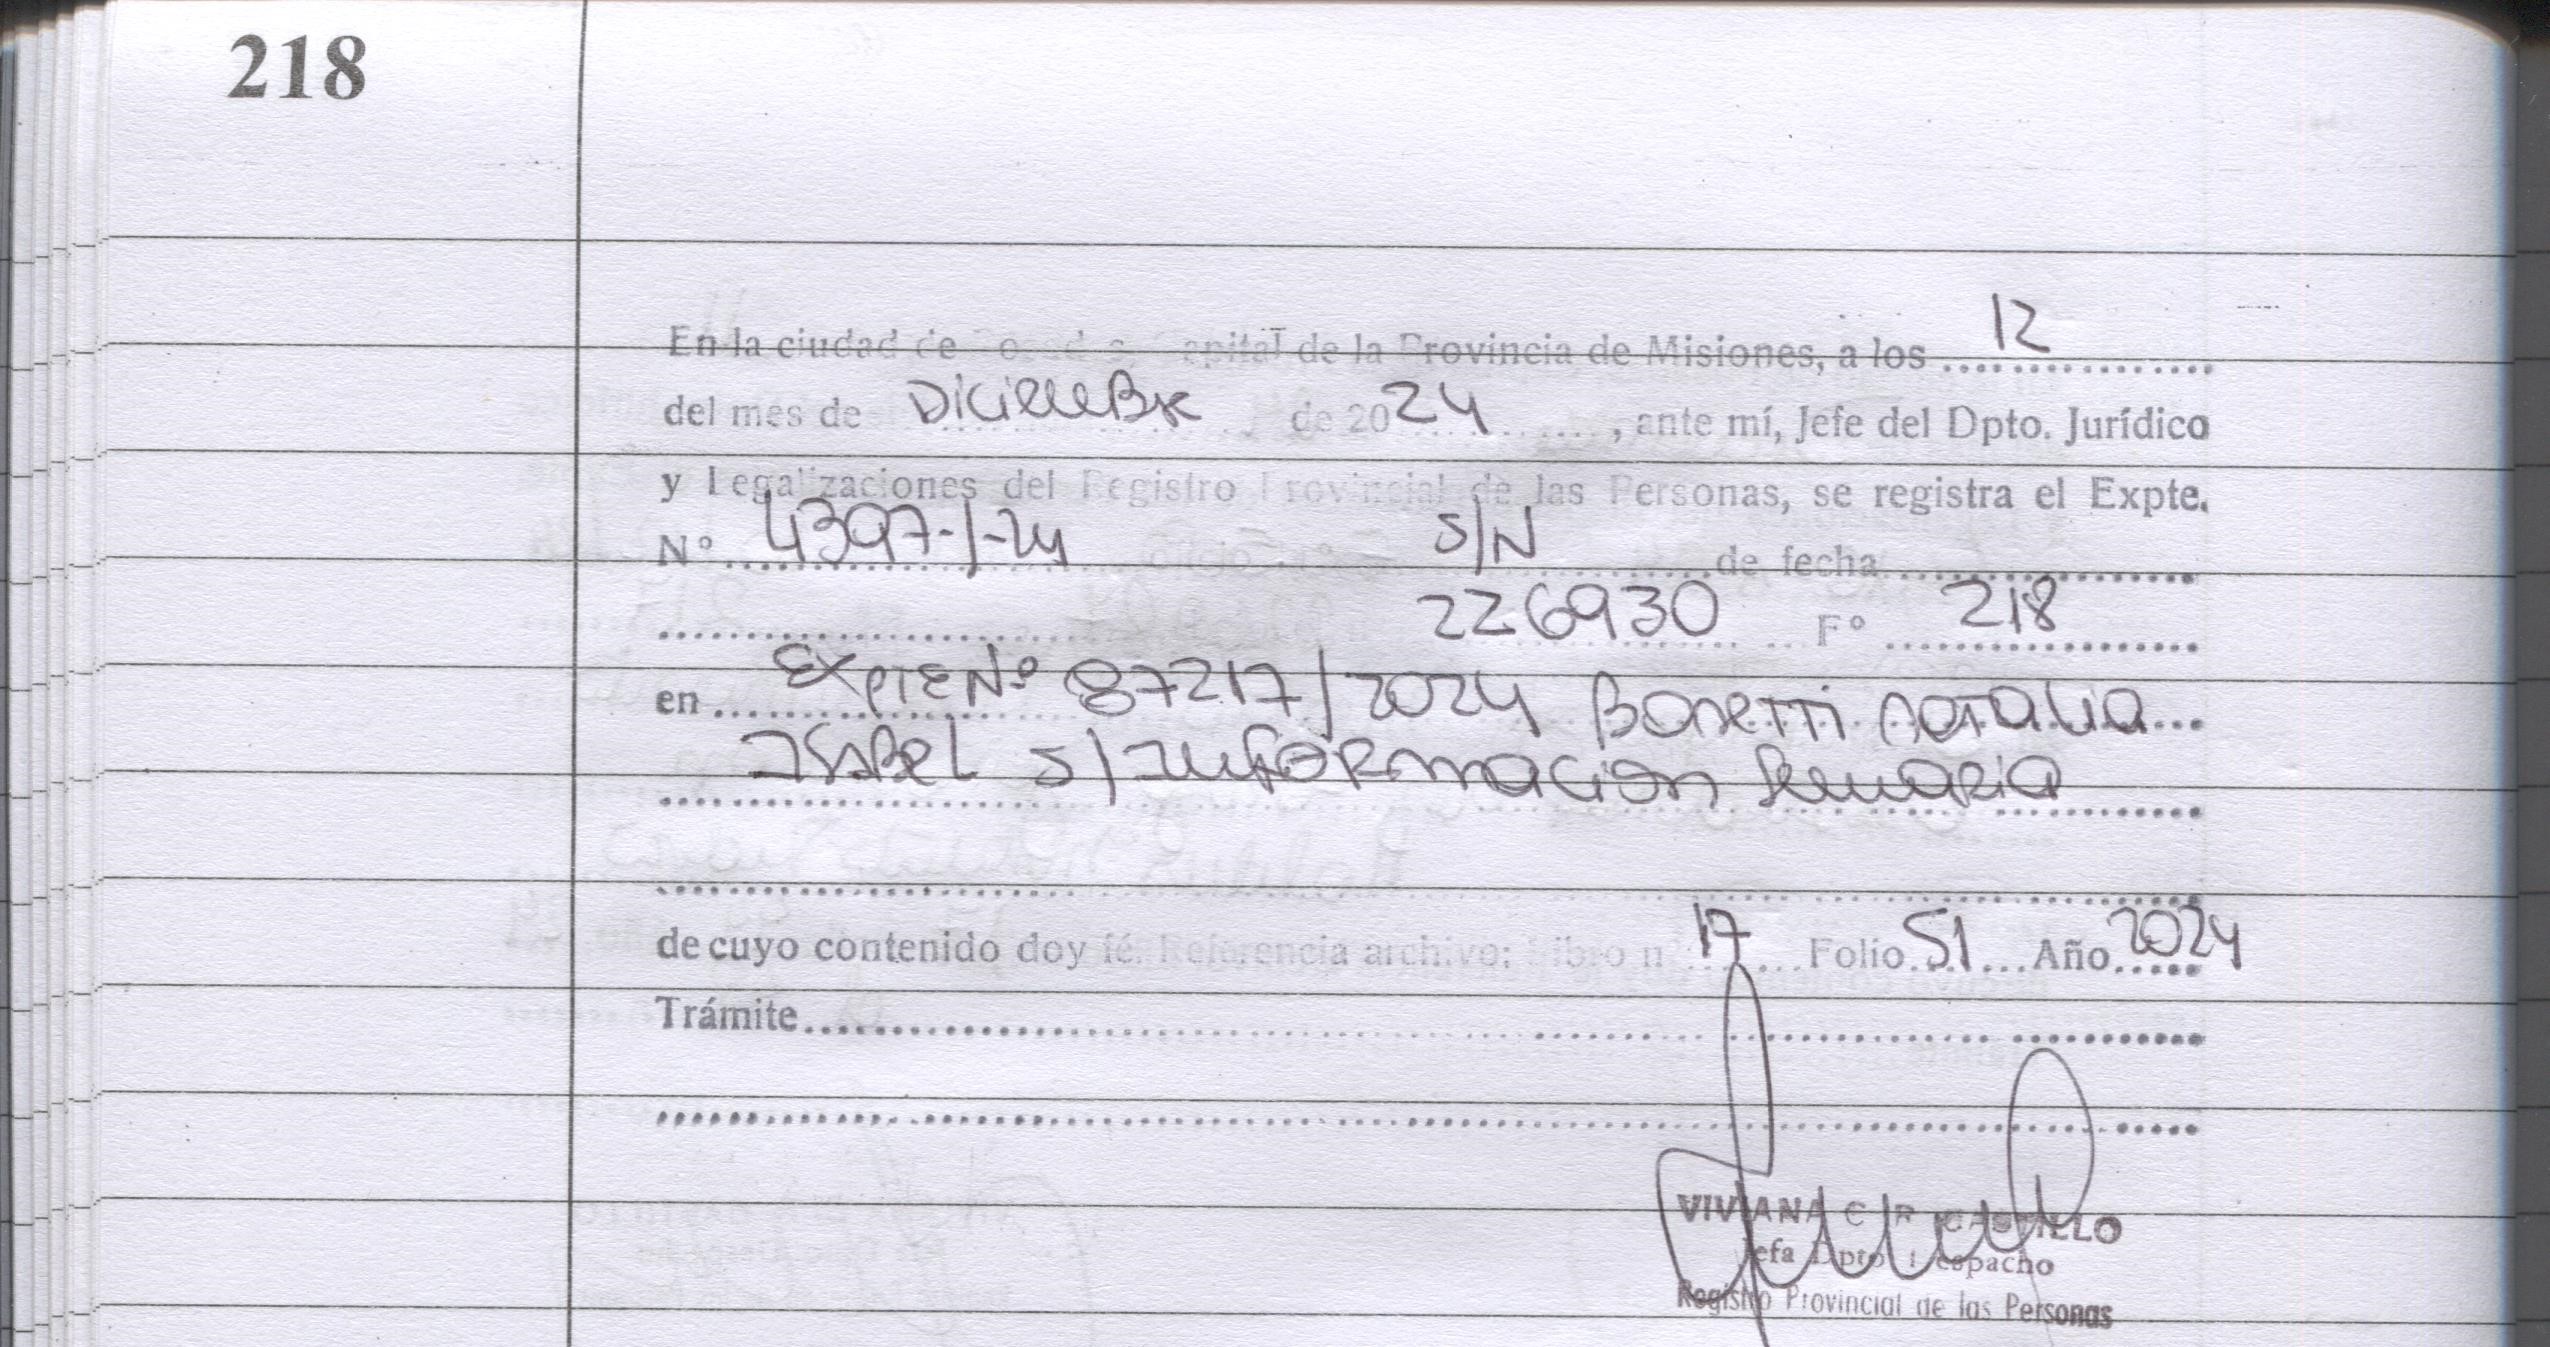 218
En la ciudad de Posadas, Capital de la Provincia de Misiones, a los 12
del mes de Diciembre de 2024, ante mí, Jefe del Dpto. Jurídico
y Legalizaciones del Registro Provincial de las Personas, se registra el Expte.
N° 4397-/-24 S/N de fecha
226930 F° 218
en Expte N° 87217/2024 Bonetti Natalia
Isabel s/ Informacion Sumaria
de cuyo contenido doy fé. Referencia archivo: Libro n 17 Folio 51 Año 2024
Trámite
VIVIANA CASTILLO
Jefa Dpto Despacho
Registro Provincial de las Personas